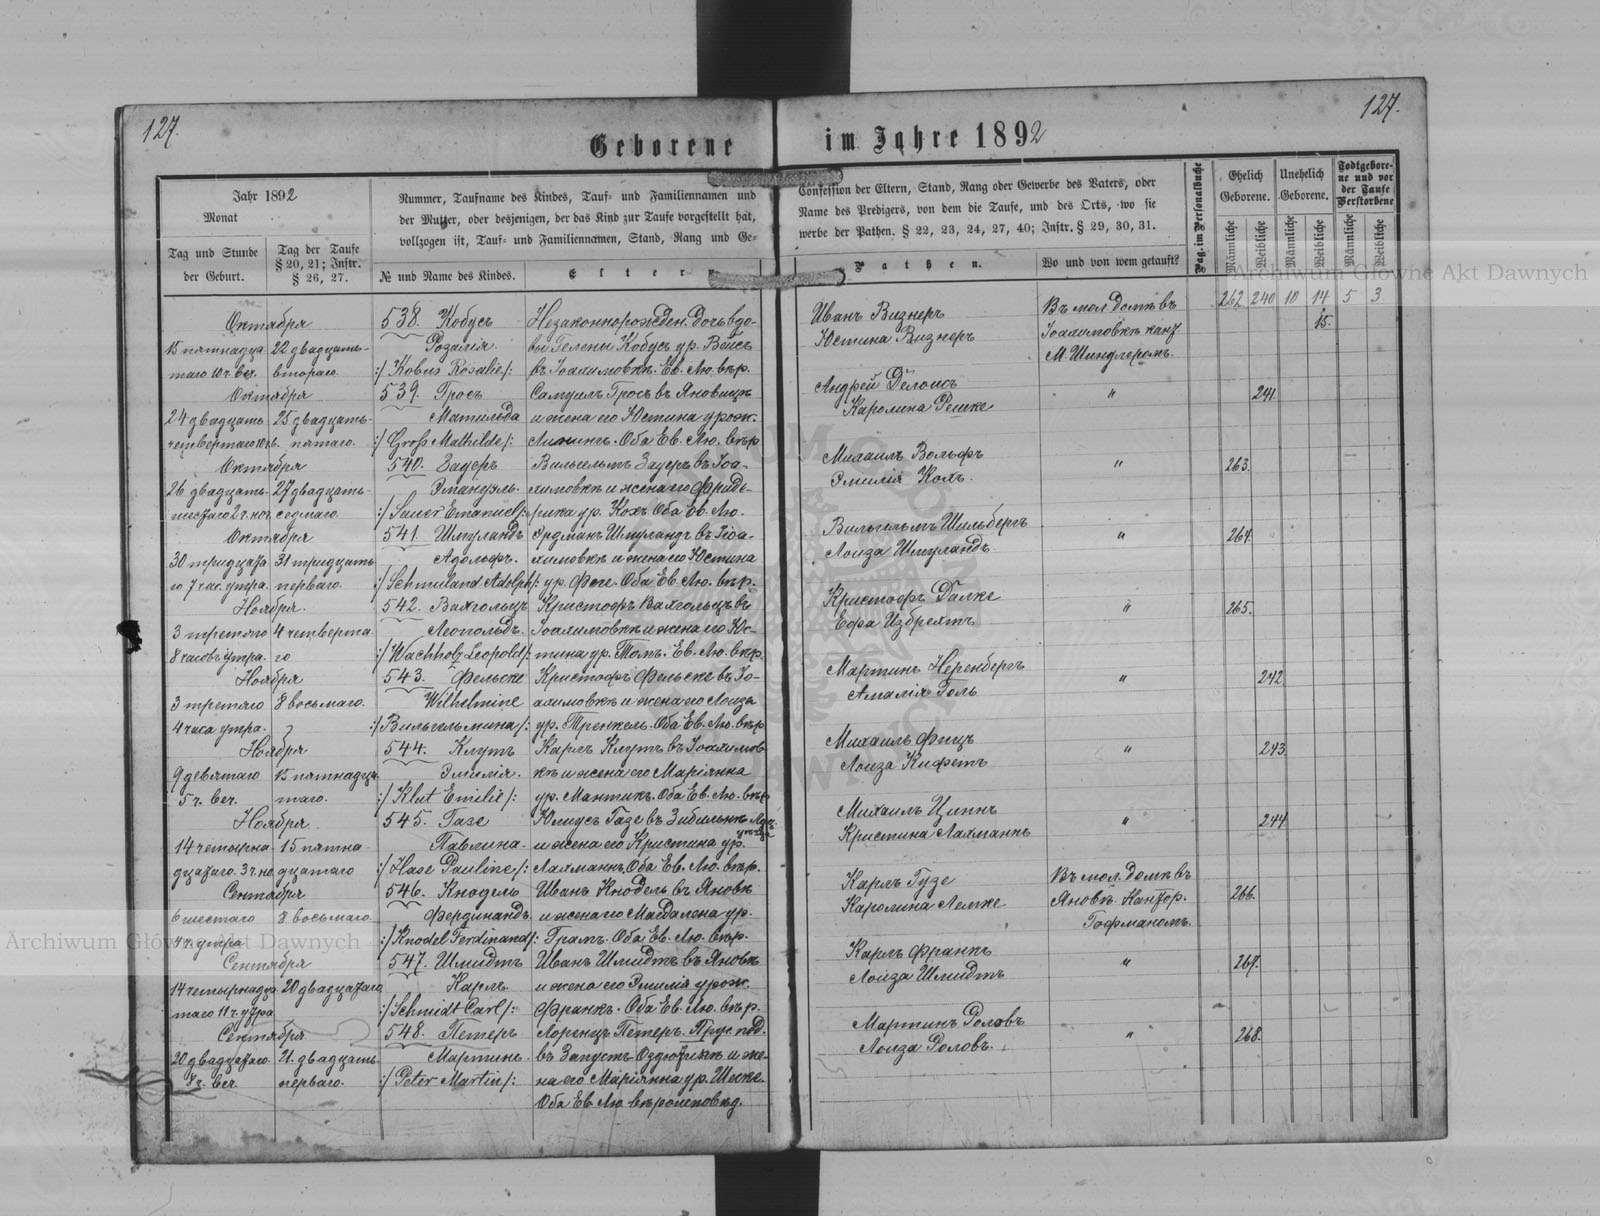 127.
127.
Geborene im Jahre 1892
Jahr 1892
Monat
Tag und Stunde der Geburt.
Tag der Taufe § 20, 21; Instr. § 26, 27.
Nummer, Taufname des Kindes, Tauf- und Familiennamen und
der Mutter, oder desjenigen, der das Kind zur Taufe vorgestellt hat,
vollzogen ist, Tauf- und Familiennamen, Stand, Rang und Ge-
№ und Name des Kindes.
Eltern
Confession der Eltern, Stand, Rang oder Gewerbe des Vaters, oder
Name des Predigers, von dem die Taufe, und des Orts, wo sie
werbe der Pathen. § 22, 23, 24, 27, 40; Instr. § 29, 30, 31.
Pathen.
Wo und von wem getauft?
Pag. im Personalbuche
Ehelich Geborene.
Unehelich Geborene.
Todtgebore-
ne und vor
der Taufe
Verstorbene
Männliche
Weibliche
Männliche
Weibliche
Männliche
Weibliche
262 240 10 14 5 3
Октября
15 пятнадца 22 двадцать-
таго 10 ч. веч. втораго.
538. Кобусъ
Розалія.
:/ Kobus Rosalie /:
Незаконнорожден. дочь вдо-
вы Гелены Кобусъ ур. Вейсъ
въ Іоахимовкѣ. Ев. Лю. вѣр.
Иванъ Визнеръ
Юстина Визнеръ
Въ мол. домѣ въ
Іоахимовкѣ кант.
М. Шиндлеромъ.
15.
Октября
24 двадцать 25 двадцать-
четвертаго 10 ч. пятаго.
539. Гросъ
Матильда
:/ Groß Mathilde /:
Самуилъ Гросъ въ Яновицѣ
и жена его Юстина урож.
Оба Ев. Лю. вѣр
Андрей
Каролина Решке
"
241.
Октября
26 двадцать- 27 двадцать-
шестаго 2 ч. ноч. седмаго.
540. Зауеръ
Эмануэль.
:/ Sauer Emanuel /:
Вильгельмъ Зауеръ въ Іоа-
химовкѣ и жена его Фриде-
рика ур. Кохъ Оба Ев. Лю.
Михаилъ Вольфъ
Эмилія Кохъ.
"
263.
Октября
30 тридцата 31 тридцать
го 7 час. утра. перваго.
541. Шмуландъ
Адольфъ.
:/ Schmuland Adolph /:
Эрдманъ Шмуландъ въ Іоа-
химовкѣ и жена его Юстина
ур. Феге. Оба Ев. Лю. вѣр.
Вильгельмъ Шильбергъ
Лоиза Шмуландъ
"
264.
Ноября.
3 третяго 4 четверта
8 часовъ утра. го
542. Вахгольцъ
Леопольдъ.
:/ Wachholz Leopold /:
Кристофъ Вахгольцъ въ
Іоахимовкѣ и жена его Юс-
тина ур. Томъ. Ев. Лю. вѣр.
Кристофъ Далке
Ефа Избрехтъ
"
265.
Ноября
3 третяго 8 восьмаго.
4 часа утра.
543. Фельске
Wilhelmine
:/ Вильгельмина /:
Кристофъ Фельске въ Іо-
ахимовкѣ и жена его Лоиза
ур. Тренкель. Оба Ев. Лю. вѣр
Мартинъ Неренбергъ
Амалія Голь
"
242.
Ноября
9 девятаго 15 пятнадца
5 ч. веч. таго.
544. Клутъ
Эмилія.
:/ Klut Emilie /:
Карлъ Клутъ въ Іоахимов
кѣ и жена его Маріянна
ур. Мантикъ. Оба Ев. Лю. вѣр
Михаилъ Фицъ
Лоиза Кифетъ
"
243.
Ноября
14 четырна- 15 пятна
дцатаго. 3 ч. но дцатаго
545. Газе
Павлина.
:/ Hase Pauline /:
Юлиусъ Газе въ
и жена его Кристина ур.
Лахманнъ Оба Ев. Лю. вѣр.
Михаилъ Циннъ
Кристина Лахманнъ
"
244
Сентября
6 шестаго 8 восьмаго.
4 ч. утра
546. Кнодель
Фердинандъ
:/ Knodel Ferdinand /:
Иванъ Кнодель въ Яновкѣ
и жена его Магдалена ур.
Грамъ. Оба Ев. Лю. вѣр.
Карлъ Гузе
Каролина Лемке
Въ мол. домѣ въ
Яновкѣ. Кантор.
Гофманомъ.
266.
Сентября
14 четырнадца 20 двадцатаго
таго 11 ч. утра
547. Шмидтъ
Карлъ.
:/ Schmidt Carl /:
Иванъ Шмидтъ въ Яновкѣ
и жена его Эмилія урож.
Франкъ. Оба Ев. Лю. вѣр.
Карлъ Франкъ
Лоиза Шмидтъ
"
267.
Сентября
20 двадцатаго. 21. двадцать
8 ч. веч перваго.
548. Петеръ
Мартинъ.
:/ Peter Martin /:
Лоренцъ Петеръ. Прус. под.
въ Запустъ и же-
на его Маріянна ур. Шеске.
Оба Ев Лю. вѣроисповѣд.
Мартинъ Головъ
Лоиза Головъ.
"
268.
Archiwum Główne Akt Dawnych
Archiwum Główne Akt Dawnych